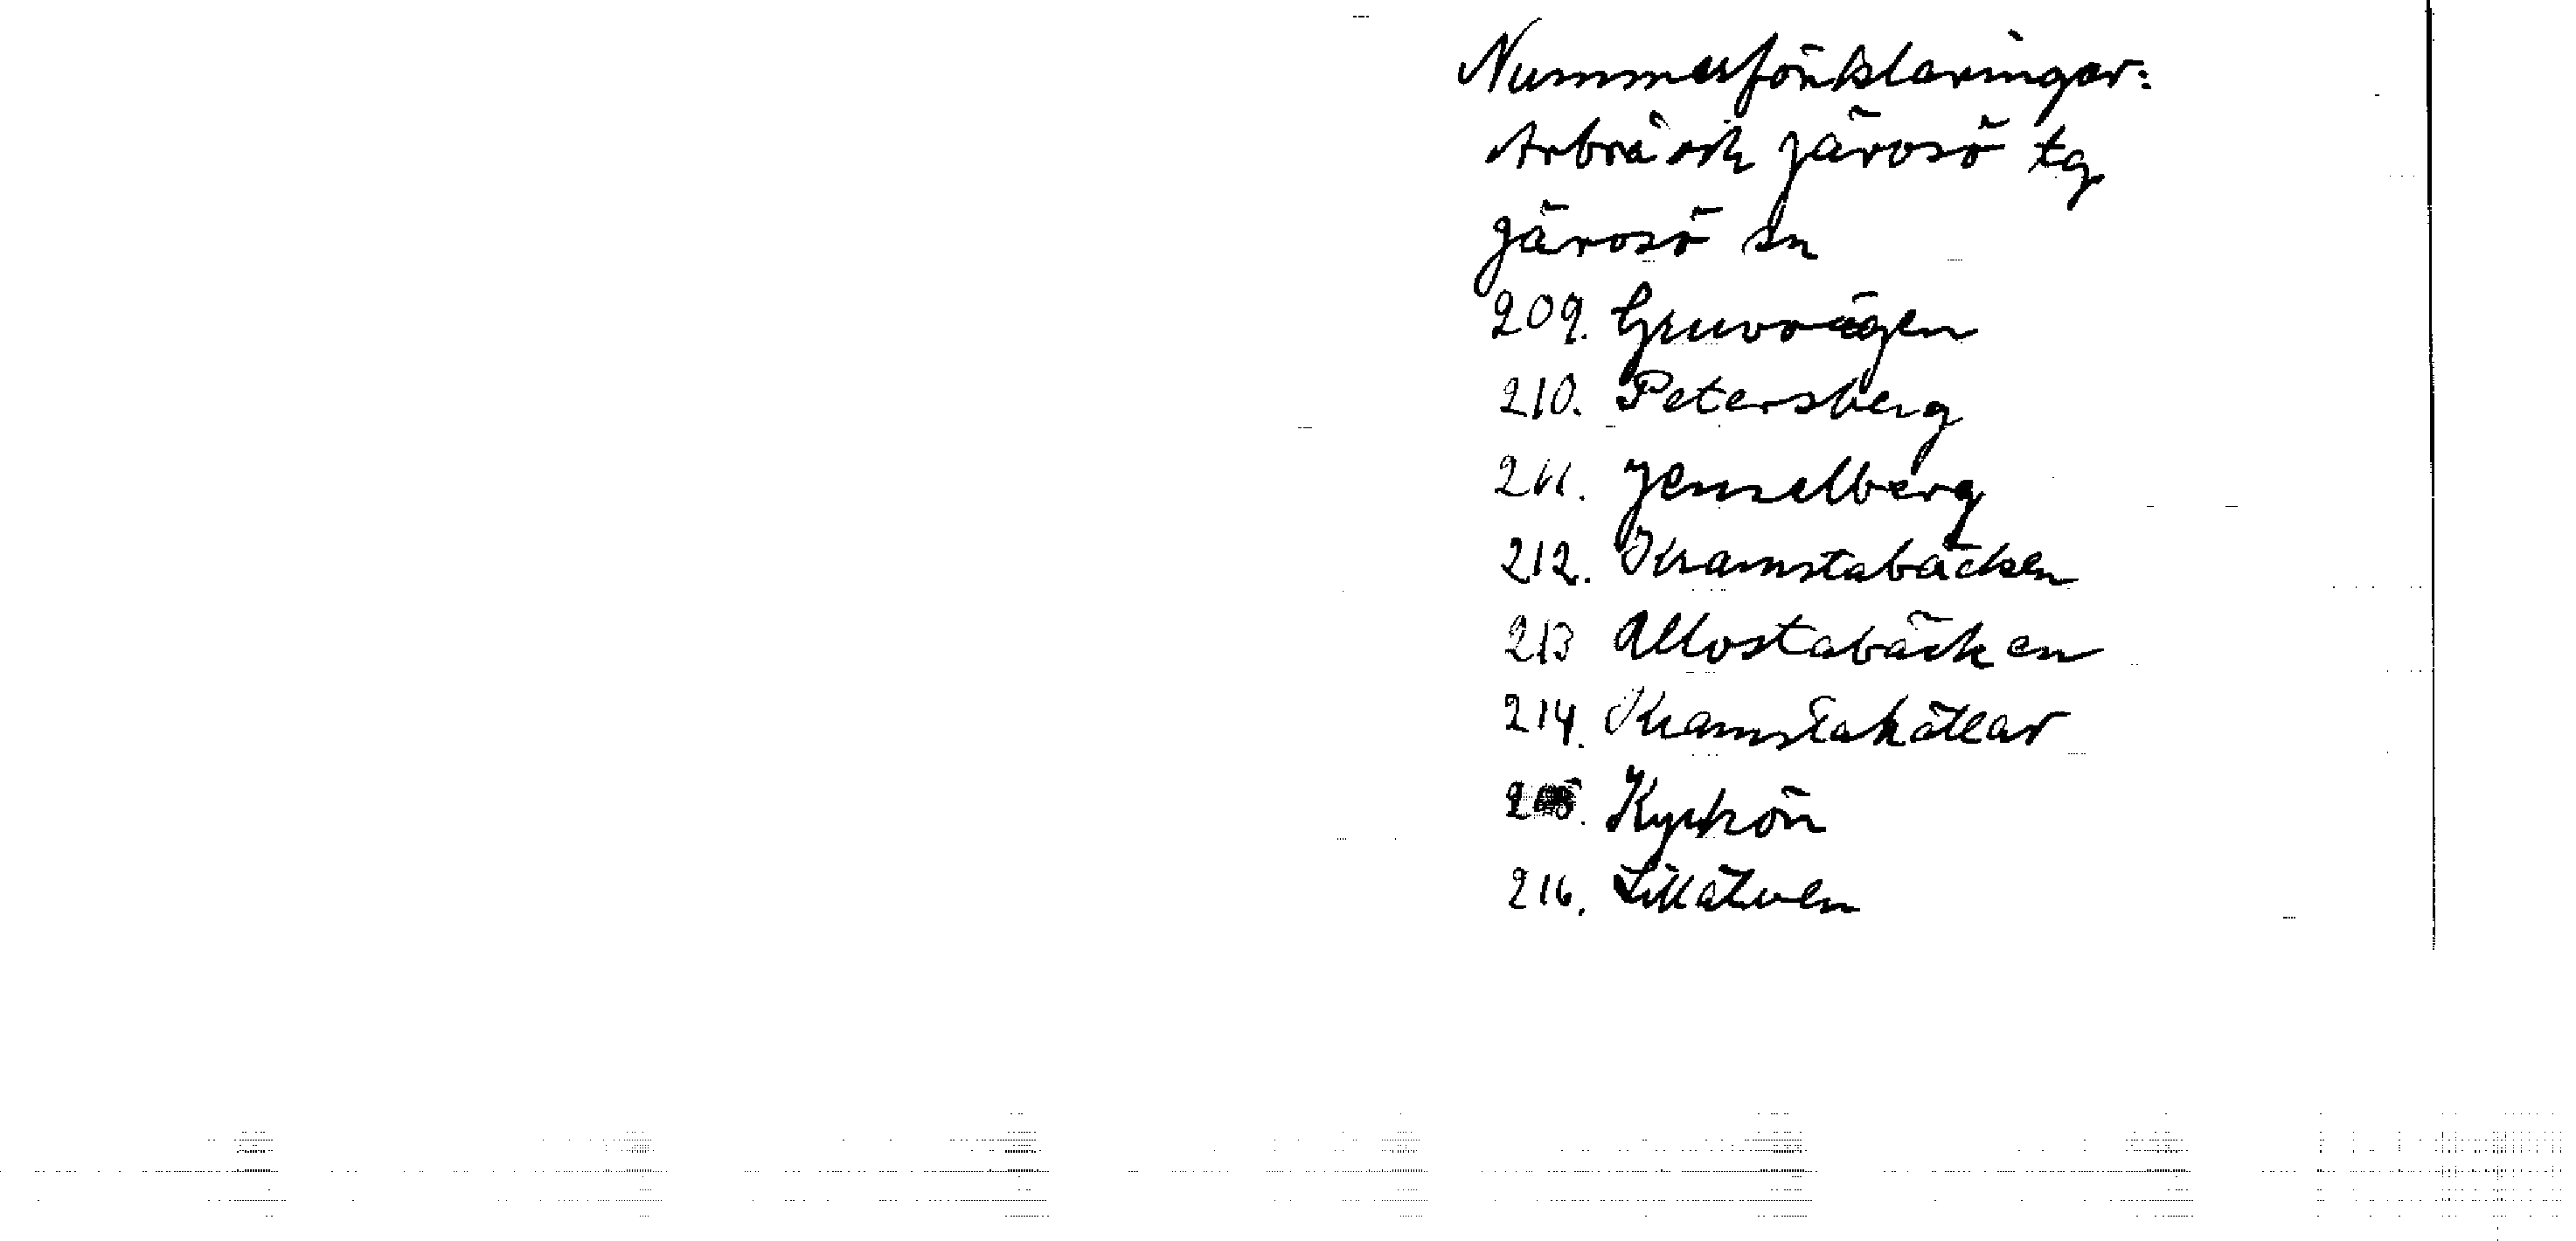 Nummerförklaringar:
Arbrå och Järvsö tg
Järvsö sn
209. Gruvvägen
210. Petersberg
211. Jenselberg
212. Kramstabäcken
213 Allostabäcken
214. Kramstakätlar
215. Kyrkön
216. Lillälven